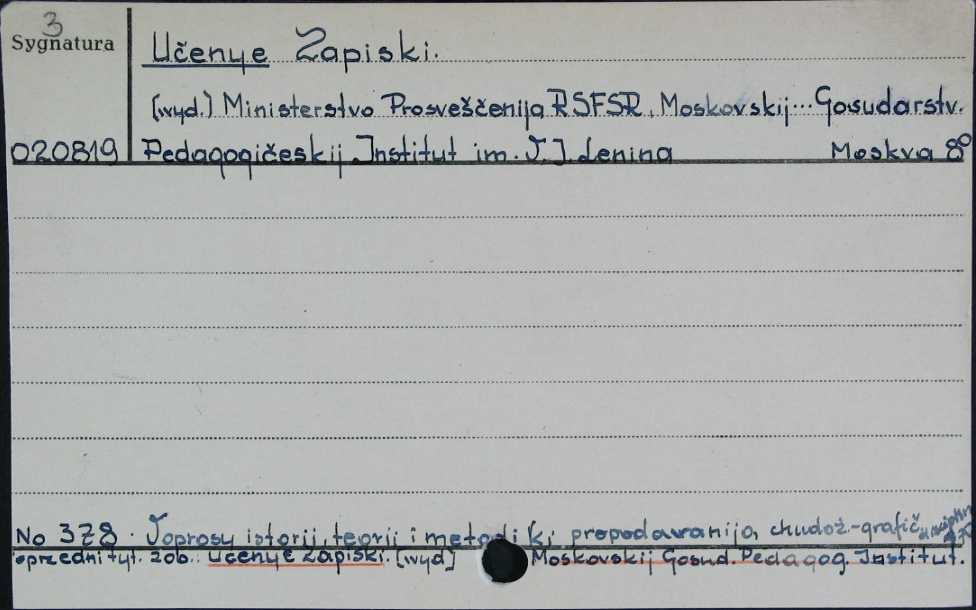 3
Sygnatura
Učenye Zapiski.
[wyd.] Ministerstvo Prosveščenija RSFSR, Moskovskij Gosudarstv.
020819 Pedagogičeskij Institut im. V. I. Lenina Moskva 8°
No 378. Voprosy istorii, teorii i metodiki prepodavanija chudož-grafič
oprzedni tyt. zob.: Učenye Zapiski. [wyd] Moskovskij Gosud. Pedagog. Institut.